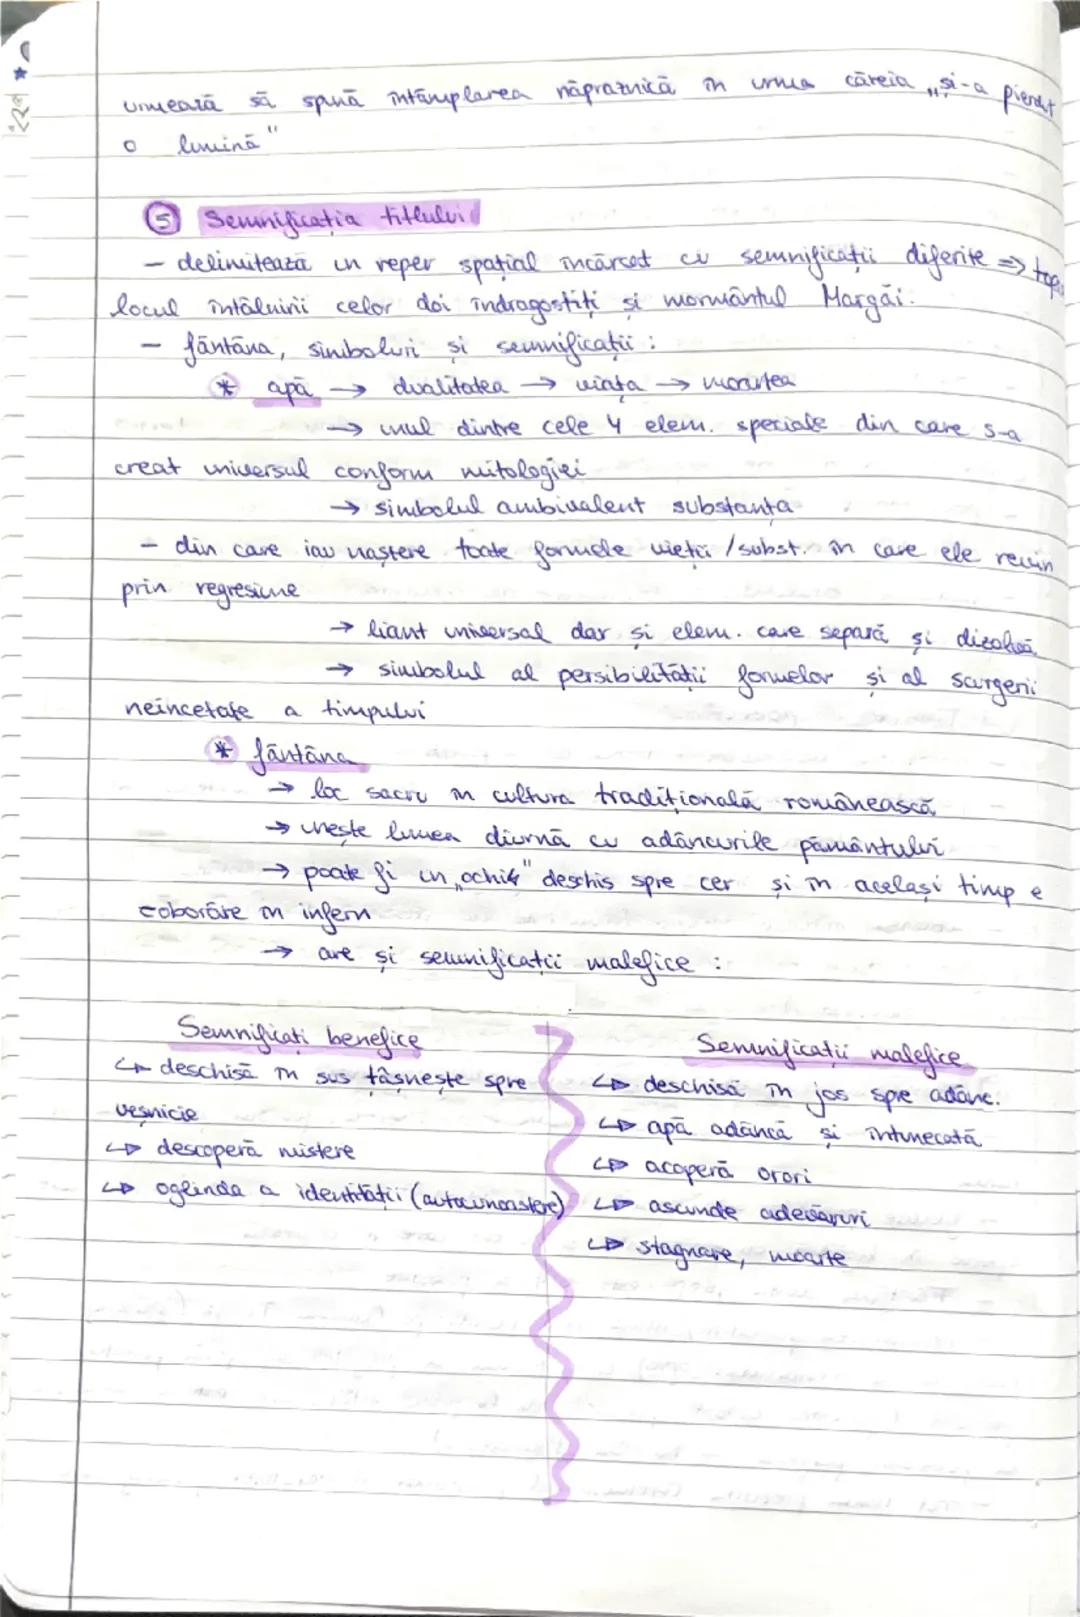 urmează să spună întâmplarea năpraznică în urma căreia „și-a pierdut
o lumină"
5 Semnificația titlului
- delimitează un reper spațial încărcat cu semnificații diferite =>
locul întâlnirii celor doi îndrăgostiți și mormântul Margăi.
- fântâna, simboluri și semnificații :
* apă → dualitatea → viața → moartea
→ unul dintre cele 4 elem. speciale din care s-a
creat universul conform mitologiei
→ simbolul ambivalent substanța
- din care iau naștere toate formele vieții / subst. în care ele revin
prin regresiune
→ liant universal dar și elem. care separă și dizolvă
→ simbolul al persibilității formelor și al scurgerii
neîncetate a timpului
* fântâna
→ loc sacru în cultura tradițională românească
→ unește lumea diurnă cu adâncurile pământului
→ poate fi un „ochi" deschis spre cer și în același timp e
coborâre în infern
→ are și semnificații malefice :
Semnificați benefice
↳ deschisă în sus țâșnește spre
veșnicie
↳ descoperă mistere
↳ oglinda a identității (autocunoaștere)
Semnificații malefice
↳ deschisă în jos spre adânc.
↳ apă adâncă și întunecată
↳ acoperă orori
↳ ascunde adevăruri
↳ stagnare, moarte